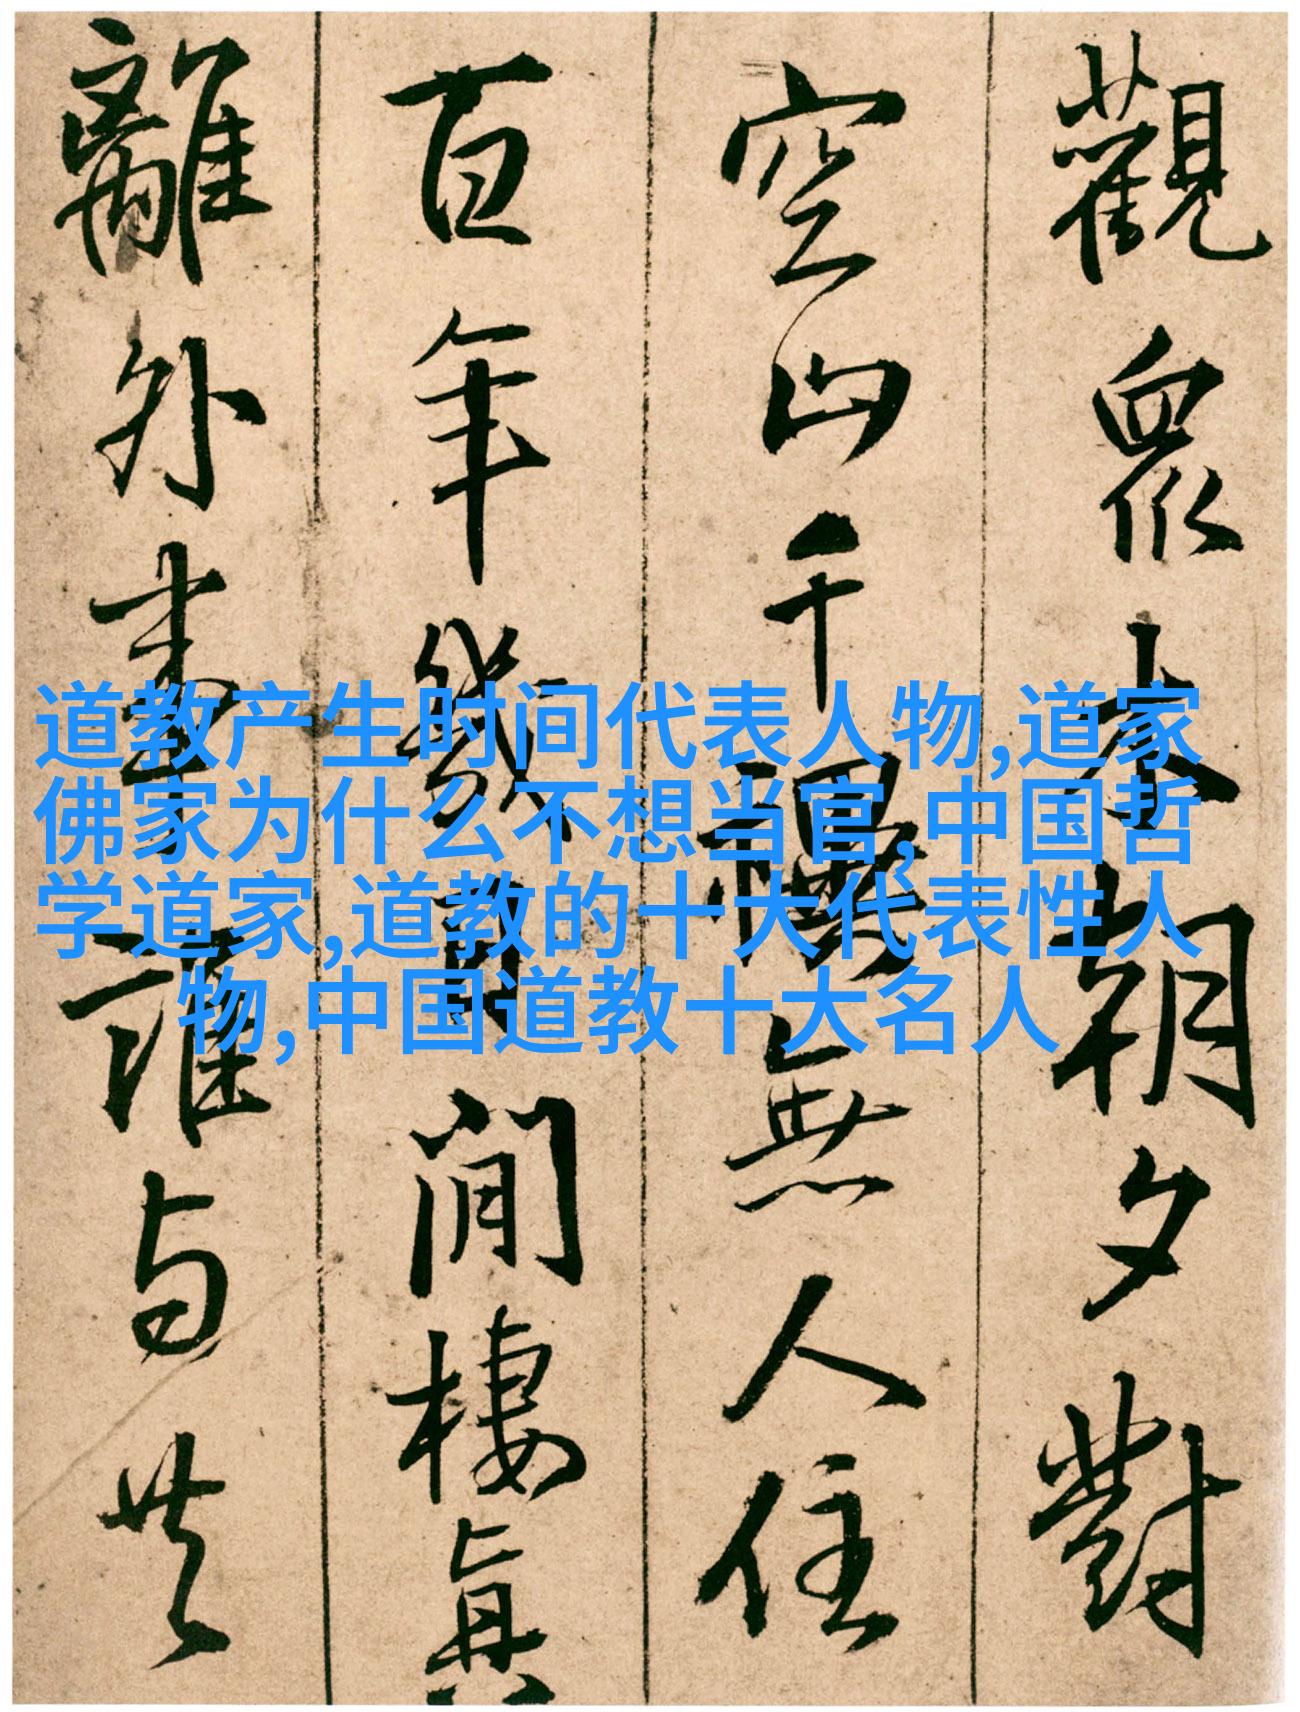 觀眾木朝夕對
空山千無人住
百年幾閒棲真
離外誰与共
道教产生时间代表人物,道家
佛家为什么不想当官,中国哲
学道家,道教的十大代表性人
物,中国道教十大名人